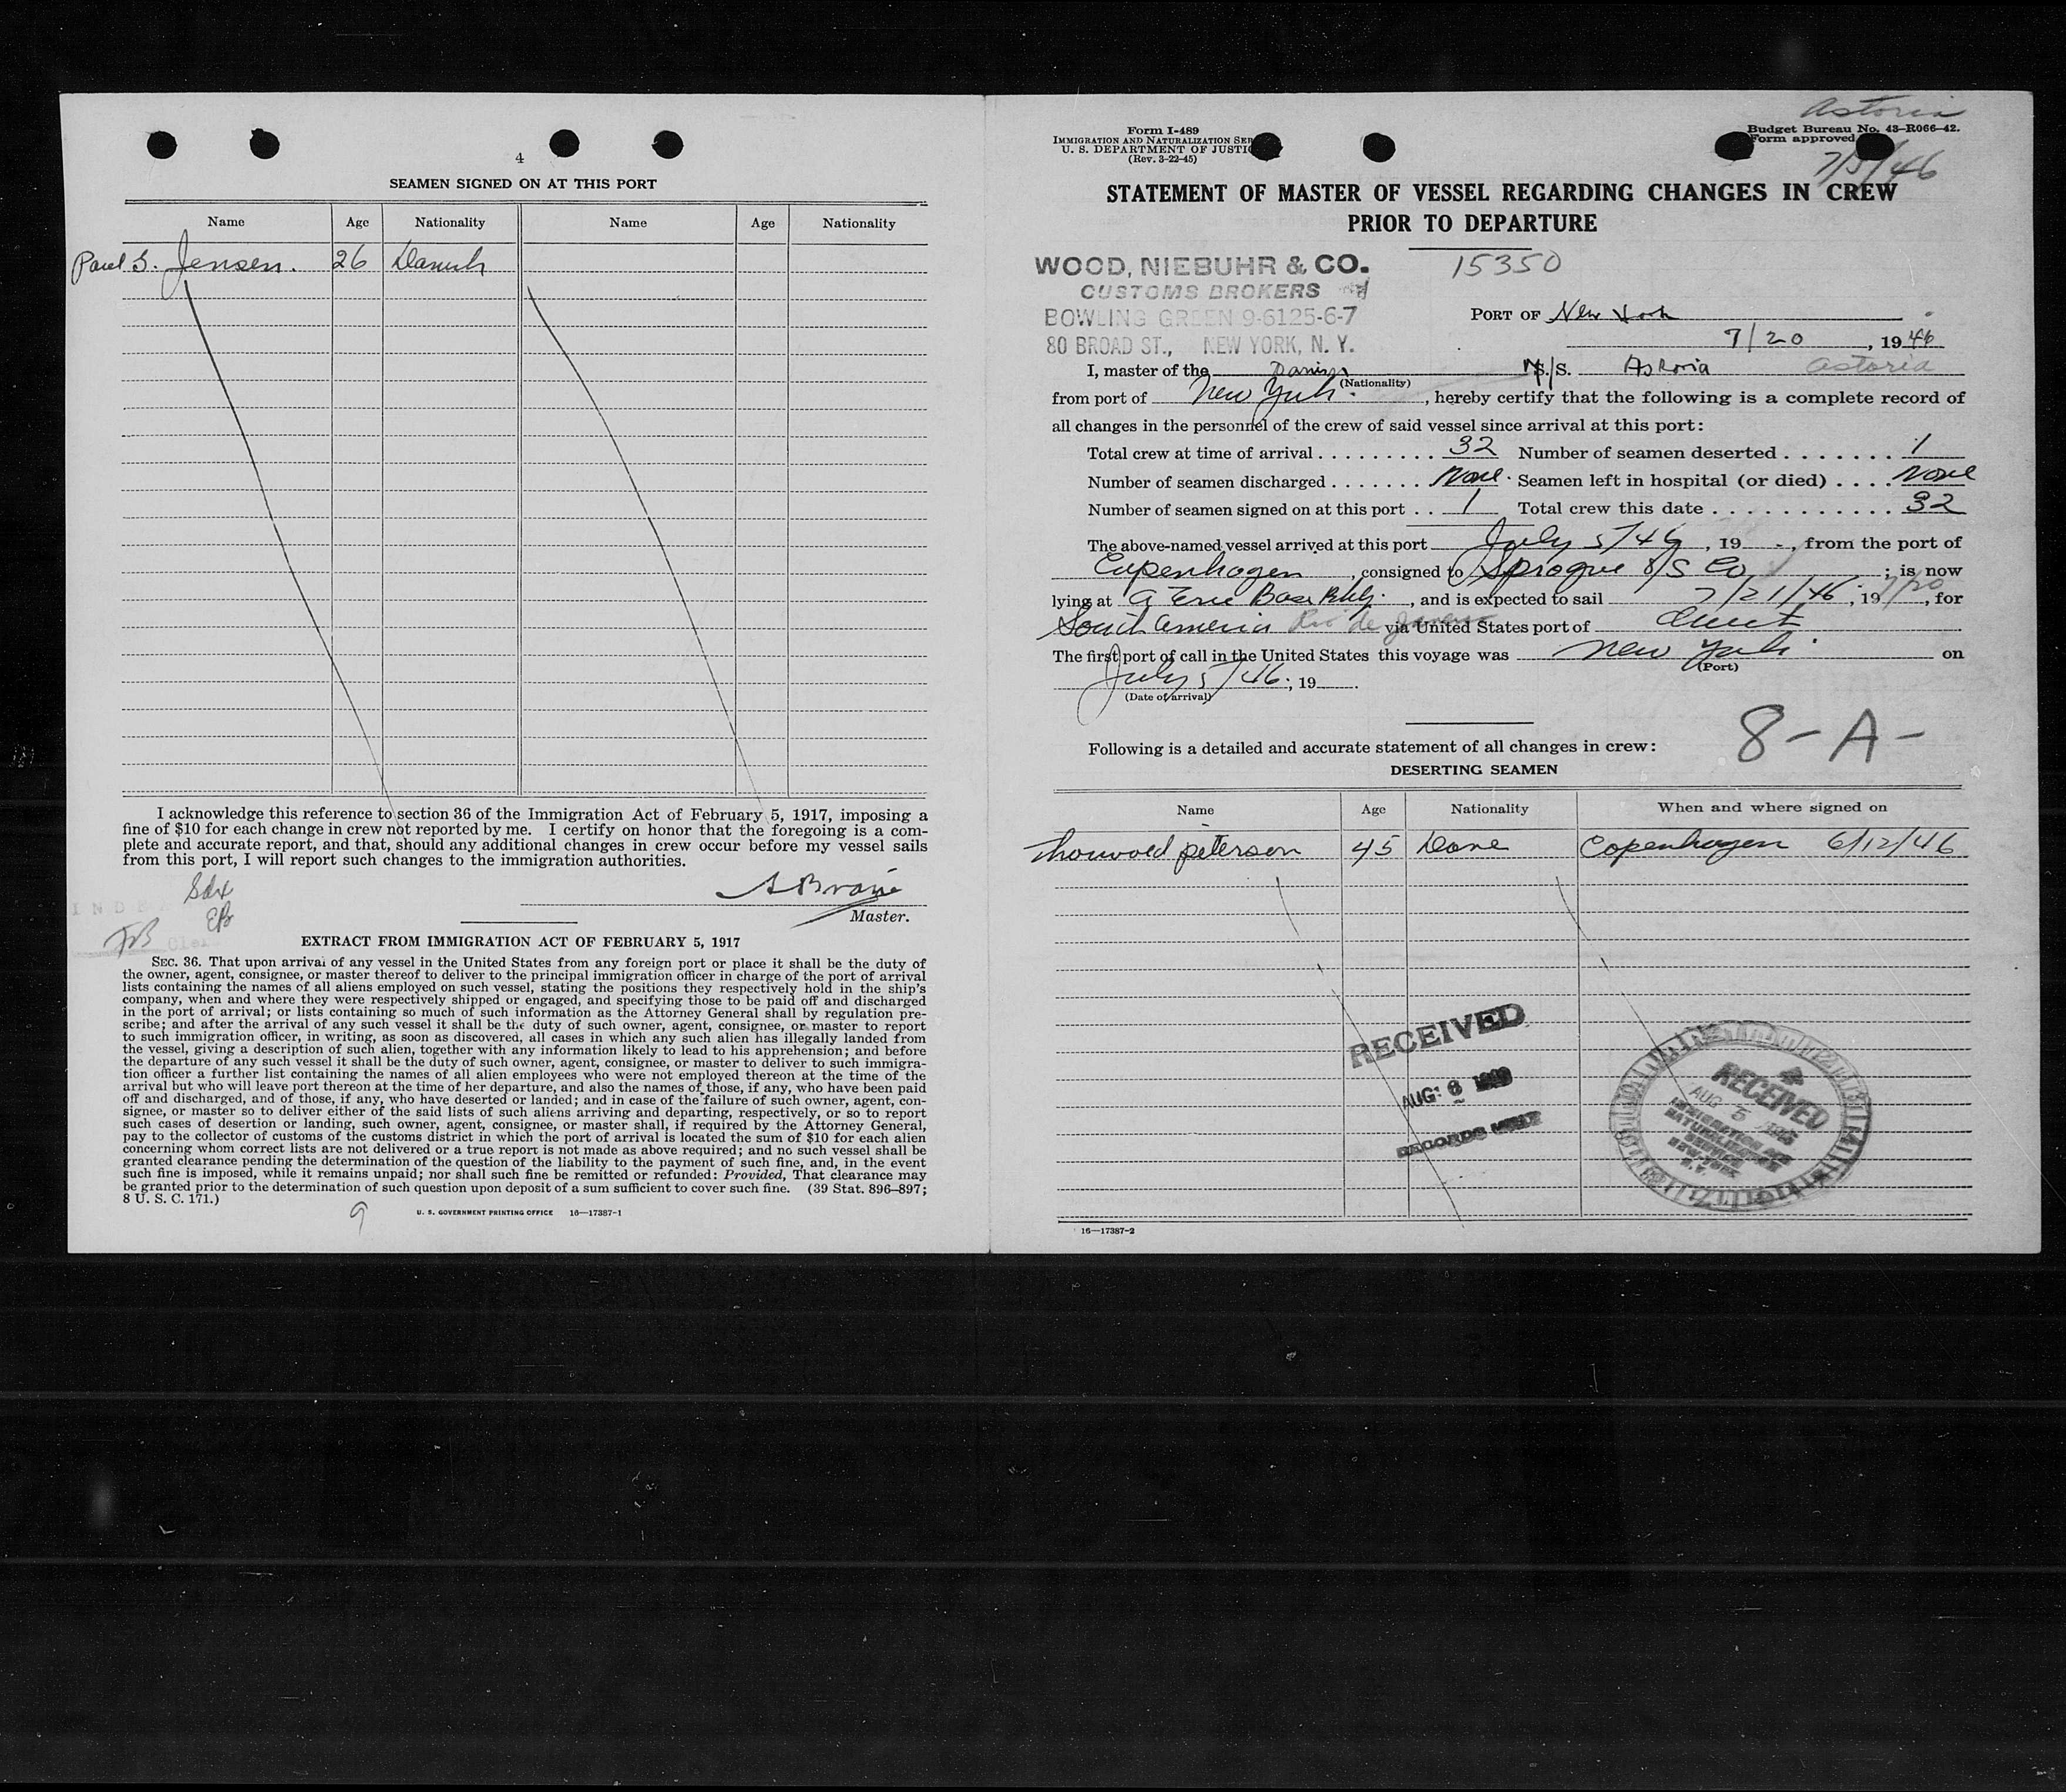 4
SEAMEN SIGNED ON AT THIS PORT
Name Age Nationality Name Age Nationality
Paul G. Jensen. 26 Danish
I acknowledge this reference to section 36 of the Immigration Act of February 5, 1917, imposing a
fine of $10 for each change in crew not reported by me. I certify on honor that the foregoing is a com-
plete and accurate report, and that, should any additional changes in crew occur before my vessel sails
from this port, I will report such changes to the immigration authorities.
Master.
EXTRACT FROM IMMIGRATION ACT OF FEBRUARY 5, 1917
SEC. 36. That upon arrival of any vessel in the United States from any foreign port or place it shall be the duty of
the owner, agent, consignee, or master thereof to deliver to the principal immigration officer in charge of the port of arrival
lists containing the names of all aliens employed on such vessel, stating the positions they respectively hold in the ship's
company, when and where they were respectively shipped or engaged, and specifying those to be paid off and discharged
in the port of arrival; or lists containing so much of such information as the Attorney General shall by regulation pre-
scribe; and after the arrival of any such vessel it shall be the duty of such owner, agent, consignee, or master to report
to such immigration officer, in writing, as soon as discovered, all cases in which any such alien has illegally landed from
the vessel, giving a description of such alien, together with any information likely to lead to his apprehension; and before
the departure of any such vessel it shall be the duty of such owner, agent, consignee, or master to deliver to such immigra-
tion officer a further list containing the names of all alien employees who were not employed thereon at the time of the
arrival but who will leave port thereon at the time of her departure, and also the names of those, if any, who have been paid
off and discharged, and of those, if any, who have deserted or landed; and in case of the failure of such owner, agent, con-
signee, or master so to deliver either of the said lists of such aliens arriving and departing, respectively, or so to report
such cases of desertion or landing, such owner, agent, consignee, or master shall, if required by the Attorney General,
pay to the collector of customs of the customs district in which the port of arrival is located the sum of $10 for each alien
concerning whom correct lists are not delivered or a true report is not made as above required; and no such vessel shall be
granted clearance pending the determination of the question of the liability to the payment of such fine, and, in the event
such fine is imposed, while it remains unpaid; nor shall such fine be remitted or refunded: Provided, That clearance may
be granted prior to the determination of such question upon deposit of a sum sufficient to cover such fine. (39 Stat. 896–897;
8 U. S. C. 171.)
9
U. S. GOVERNMENT PRINTING OFFICE 16—17387-1
Astoria
Form I-489
IMMIGRATION AND NATURALIZATION SER
U. S. DEPARTMENT OF JUSTIC
(Rev. 3-22-45)
Budget Bureau No. 43–R066–42.
Form approved
7/5/46
STATEMENT OF MASTER OF VESSEL REGARDING CHANGES IN CREW
PRIOR TO DEPARTURE
WOOD, NIEBUHR & CO.
CUSTOMS BROKERS
BOWLING GREEN 9-6125-6-7
80 BROAD ST., NEW YORK, N. Y.
15350
PORT OF New York
7/20, 1946
I, master of the Danish M/S. Astoria Astoria
(Nationality)
from port of New York, hereby certify that the following is a complete record of
all changes in the personnel of the crew of said vessel since arrival at this port:
Total crew at time of arrival 32 Number of seamen deserted 1
Number of seamen discharged None Seamen left in hospital (or died) None
Number of seamen signed on at this port 1 Total crew this date 32
The above-named vessel arrived at this port July 5/46, 19 -, from the port of
Copenhagen, consigned to Sprague S/S Co; is now
lying at Erie Basin Bklg., and is expected to sail 7/21/46, 19 7/20, for
South America Rio de Janeiro via United States port of direct
The first port of call in the United States this voyage was New York on
(Port)
July 5/46, 19
(Date of arrival)
8-A-
Following is a detailed and accurate statement of all changes in crew:
DESERTING SEAMEN
Name Age Nationality When and where signed on
Thorvold petersen 45 Dane Copenhagen 6/12/46
RECEIVED
AUG 6
RECORDS
RECEIVED
AUG 5
IMMIGRATION AND
NATURALIZATION
SERVICE
NEW YORK
N. Y.
16—17387-2